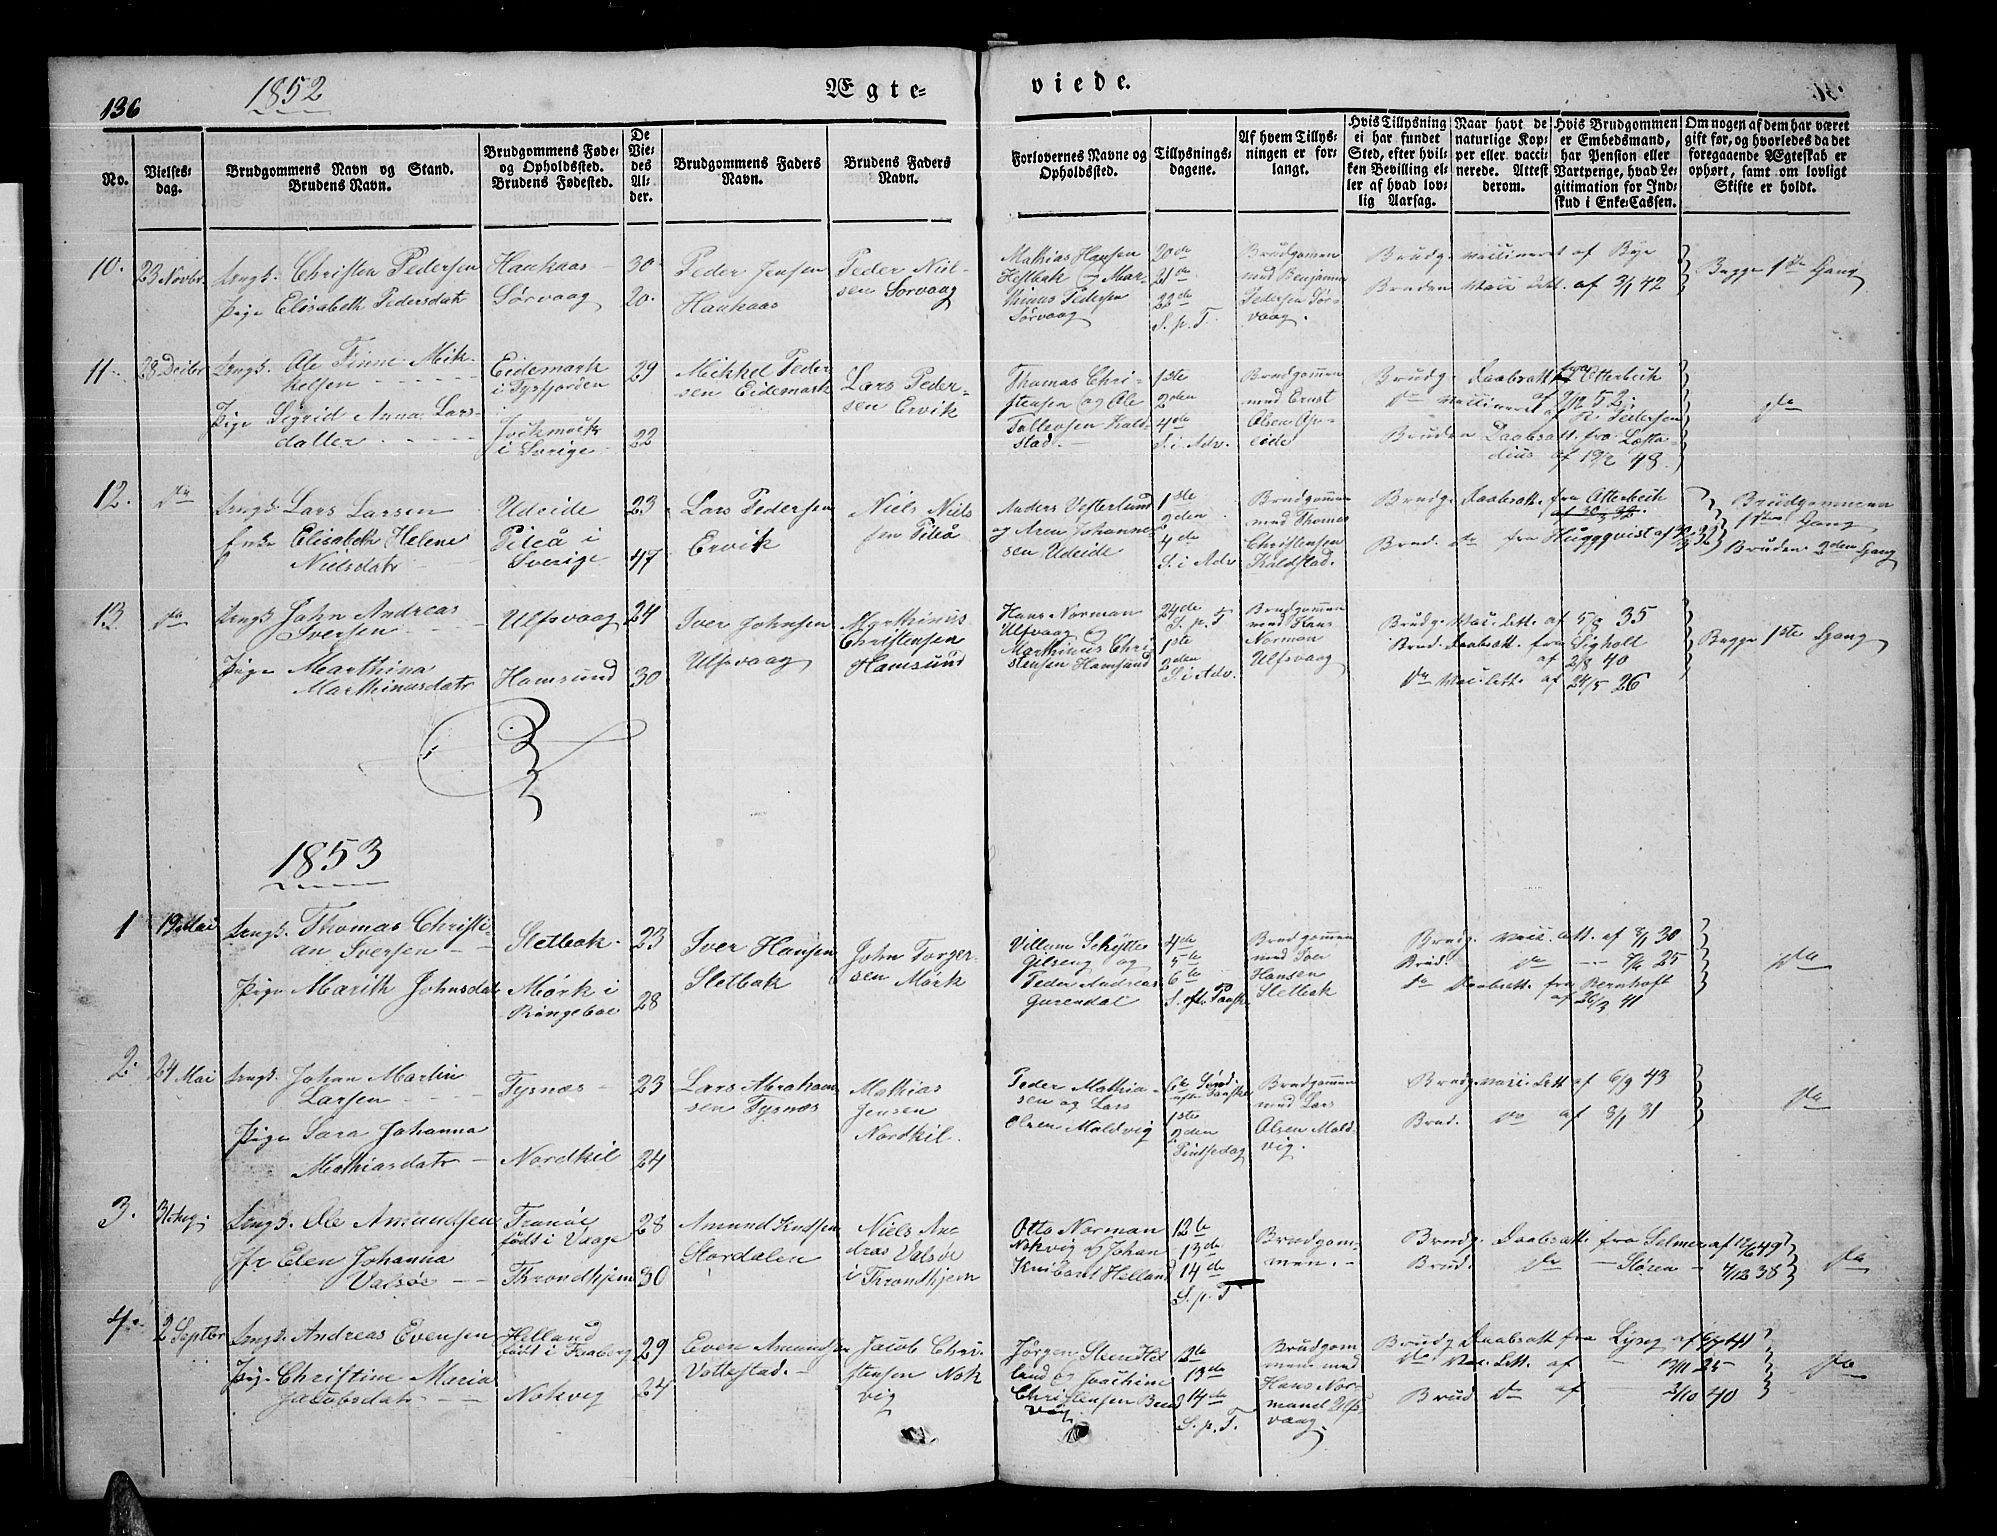 136
1852
Ægte-
viede.
No.
Vielses-
dag.
Brudgommens Navn og Stand.
Brudens Navn.
Brudgommens Føde-
og Opholdssted.
Brudens Fødested.
De
Vie-
des
Al-
der.
Brudgommens Faders
Navn.
Brudens Faders
Navn.
Forlovernes Navne og
Opholdssted.
Tillysnings-
dagene.
Af hvem Tillys-
ningen er for-
langt.
Hvis Tillysning
ei har fundet
Sted, efter hvil-
ken Bevilling el-
ler af hvad lov-
lig Aarsag.
Naar havt de
naturlige Kop-
per eller vacci-
nerede. Attest
derom.
Hvis Brudgommen
er Embedsmand,
har Pension eller
Vartpenge, hvad Le-
gitimation for Ind-
skud i Enke-Cassen.
Om nogen af dem har været
gift før, og hvorledes da det
foregaaende Ægteskab er
ophørt, samt om lovligt
Skifte er holdt.
10.
23 Novbr
Ungk. Christen Pedersen
Pige Elisabeth Pedersdatr
Haukaas
Sørvaag
30
20.
Peder Jensen
Haukaas
Peder Niel-
sen Sørvaag
Mathias Hansen
Kjelbak og Mar-
thinus Pedersen
Sørvaag
20de
21de
22de
S. p. T
Brudgomen
med Benjamin
Pedersen Sør-
vaag.
Brudg. vaccineret af Bye
Bruden Vacc. Att. af 3/1 42
Begge 1ste Gang
11.
28 Decbr
Ungk. Ole Finne Mik-
kelsen
Pige Sigrid Anna Lars-
datter
Eidemark
i Tysfjorden
Jockmock
i Sverige
29
22
Mikkel Peder-
sen Eidemark
Lars Peder-
sen Ervik
Thomas Chri-
stensen og Ole
Tollevsen Kald-
stad.
1ste
2den
4de
S. i Adv.
Brudgommen
med Ernst
Olsen Op-
eide
Brudg. Daabsatt. fra Otterbech
af 9/12 52.
do vaccineret af R. Pedersen
Bruden Daabsatt. fra Læsta-
dius af 19/2 48.
do
12.
do
Ungk. Lars Larsen
Enke Elisabeth Helene
Nielsdatr
Udeide
Piteå i
Sverige
23
47
Lars Pedersen
Ervik
Niels Niel-
sen Piteå
Anders Vesterlund
og Aren Johanne-
sen Udeide
1ste
2den
4de
S. i Adv
Brudgommen
med Thomas
Christensen
Kaldstad.
Brudg. Daabsatt. fra Otterbech
Brud. do fra Huggqvist af 30/3 32
Brudgommen
1ste Gang
Bruden 2den Gang
13.
do
Ungk. John Andreas
Iversen
Pige Marthina
Marthinusdatr
Ulfsvaag
Hamsund
24
30
Iver Johnsen
Ulfsvaag
Marthinus
Christensen
Hamsund
Hans Norman
Ulfsvaag og
Marthinus Chri-
stensen Hamsund
24de
S. p. T
1ste
2den
S. i Adv.
Brudgommen
med Hans
Norman
Ulfsvaag
Brudg. Vacc. Att. af 5/8 35
Brud. Daabsatt. fra Sigholt
af 2/8 40
do Vacc. Att. af 24/5 26
Begge 1ste Gang
1853
1
19 Mai
Ungk. Thomas Christi-
an Iversen
Pige Marith Johnsdatr
Sletbak.
Mørk i
Ringeboe
23
28
Iver Hansen
Sletbak
John Torger-
sen Mørk
Villum Schytte
Gilseng og
Peder Andreas
Gurendal
4de
5te
6te
S. eft. Paaske
Brudgommen
med Iver
Hansen
Sletbak
Brudg. Vacc. att. af 8/1 30
Brud. do 7/6 25
do Daabsatt. fra Bernhoft
af 26/3 41
do
2.
24 Mai
Ungk. Johan Martin
Larsen
Pige Sara Johanna
Mathiasdatr
Tysnæs
Nordkil
23
24
Lars Abraham-
sen Tysnæs
Mathias
Jensen
Nordkil.
Peder Mathia-
sen og Lars
Olsen Maldvig
6te Sønd.
efter Paaske
1ste
2den
Pintsedag
Brudgommen
med Lars
Olsen Mald-
vig.
Brudg. Vacc. Att af 6/9 43
Brud. do af 3/1 31
do
3.
31 Aug.
Ungk. Ole Amundsen
Jfr Elen Johanna
Valsøe
Tranøe
født i Vaage
Throndhjem
28
30
Amund Knudsen
Stordalen
Niels An-
dras Valsøe
i Throndhjem
Otto Norman
Nokvig og Johan
Knibant Helland
12te
13de
14de
S. p. T
Brudgom-
men.
Brudg. Daabsatt. fra Selmer af 12/6 49
Brud. do Støren 7/12 38
do
4.
2 Septbr
Ungk. Andreas Evensen
Pige Christine Maria
Jacobsdatr
Helland
født i Faaberg
Nokvig
29
24
Even Amundsen
Vottestad.
Jacob Chri-
stensen Nok
vig
Jørgen
land og Joachim
Christensen
vig
12te
13de
14de
S. p. T.
Brudgom
men med
Hans Nor-
mand Ulfs-
vaag.
Brudg. Daabsatt fra Lyseg af 6/7 41
do Vac. Att. af 25
Brud do af 2/10 40
do